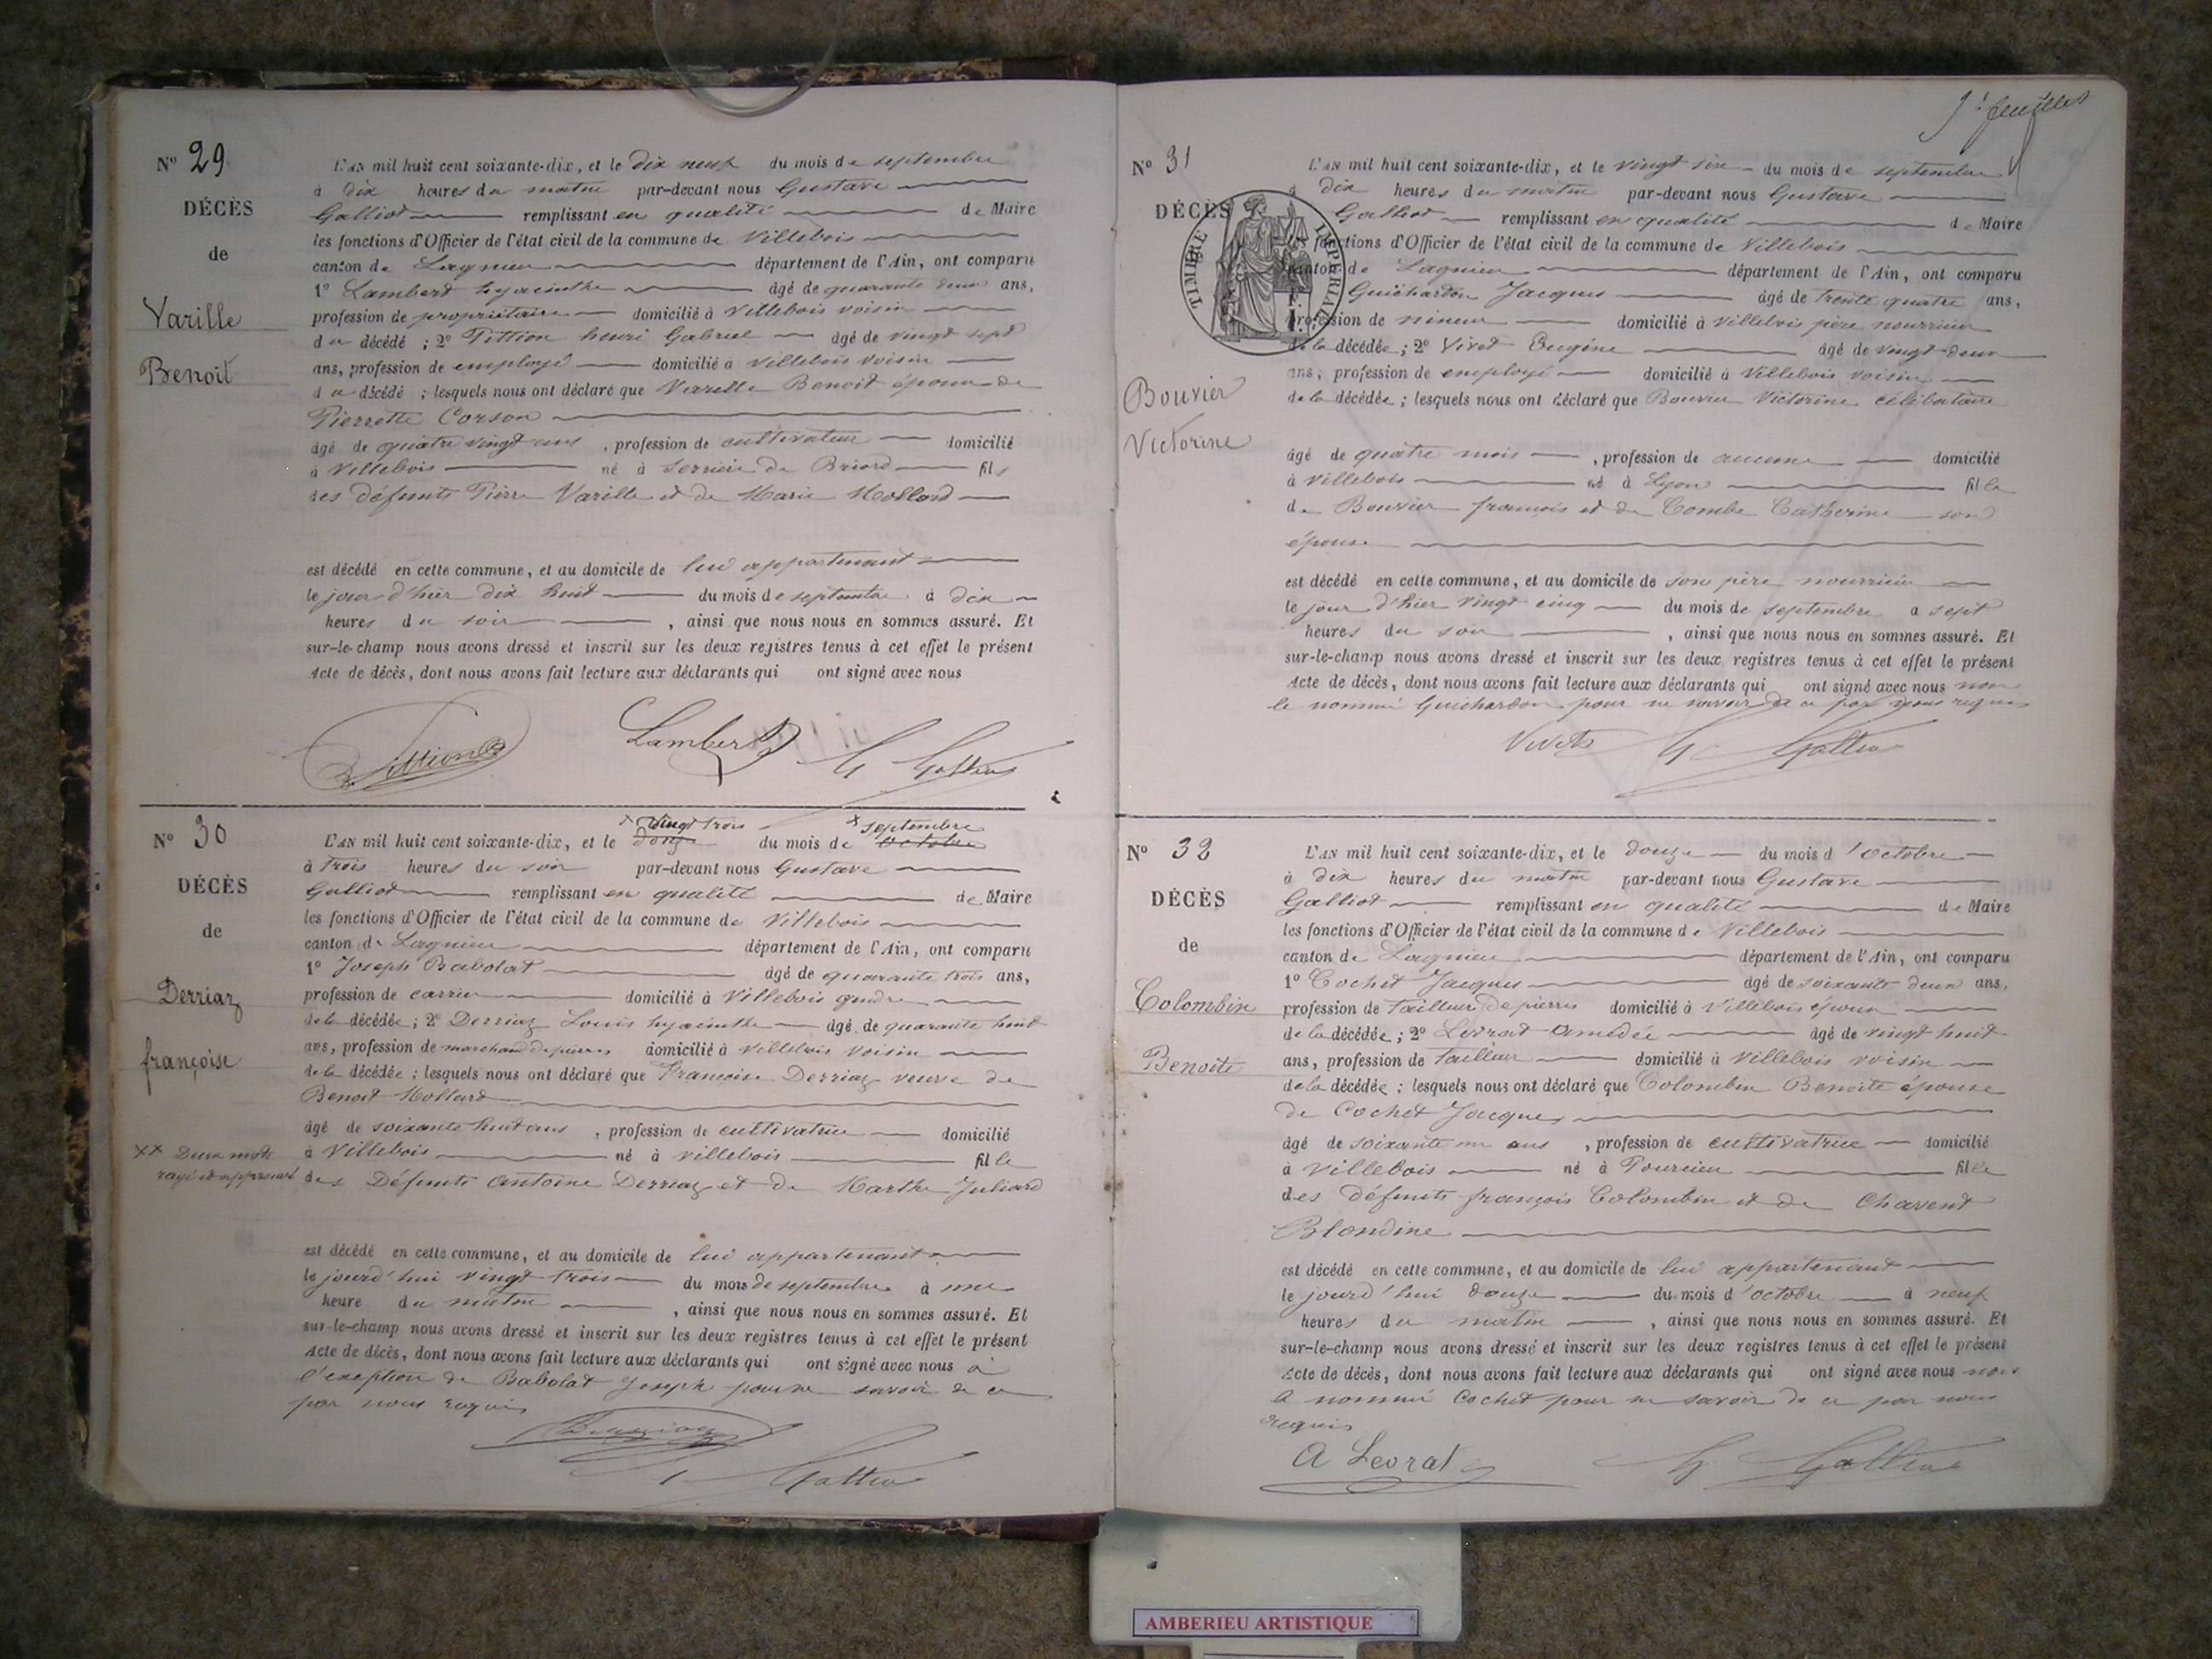 Nº 29
DÉCÈS
de
Varille
Benoit
L'AN mil huit cent soixante-dix, et le dix neuf du mois de septembre
à dix heures du matin par-devant nous Gustave
Galliot remplissant en qualité de Maire
les fonctions d'Officier de l'état civil de la commune de Villebois
canton de Lagnieu département de l'Ain, ont comparu
1º Lambert hyacinthe âgé de quarante deux ans,
profession de propriétaire domicilié à Villebois voisin
du décédé ; 2º Pittion henri Gabriel âgé de vingt sept
ans, profession de employé domicilié à Villebois voisin
du décédé ; lesquels nous ont déclaré que Varille Benoit époux de
Pierrette Corson
âgé de quatre vingt ans , profession de cultivateur domicilié
à Villebois né à Serrière de Briord fils
des défunts Pierre Varille et de Marie Mollard
est décédé en cette commune, et au domicile de lui appartenant
le jour d'hier dix huit du mois de septembre à dix
heures du soir , ainsi que nous nous en sommes assuré. Et
sur-le-champ nous avons dressé et inscrit sur les deux registres tenus à cet effet le présent
Acte de décès, dont nous avons fait lecture aux déclarants qui ont signé avec nous
Pittion Lambert G Galliot
Nº 30
DÉCÈS
de
Derriaz
françoise
xx Deux mots
rayé et approuvé
x vingt trois x septembre
L'AN mil huit cent soixante-dix, et le douze du mois de octobre
à trois heures du soir par-devant nous Gustave
Galliot remplissant en qualité de Maire
les fonctions d'Officier de l'état civil de la commune de Villebois
canton de Lagnieu département de l'Ain, ont comparu
1º Joseph Babolat âgé de quarante trois ans,
profession de carrier domicilié à Villebois gendre
de la décédée ; 2º Derriaz Louis hyacinthe âgé de quarante huit
ans, profession de marchand de pierres domicilié à Villebois voisin
de la décédée ; lesquels nous ont déclaré que Françoise Derriaz veuve de
Benoit Mollard
âgé de soixante huit ans , profession de cultivatrice domicilié
à Villebois né à Villebois fille
des Défunts Antoine Derriaz et de Marthe Juliard
est décédé en cette commune, et au domicile de lui appartenant
le jourd'hui vingt trois du mois de septembre à une
heure du matin , ainsi que nous nous en sommes assuré. Et
sur-le-champ nous avons dressé et inscrit sur les deux registres tenus à cet effet le présent
Acte de décès, dont nous avons fait lecture aux déclarants qui ont signé avec nous à
l'exeption de Babolat Joseph pour ne savoir de ce
par nous requis
Galliot
9e feuillet
Nº 31
DÉCÈS
TIMBRE IMPERIAL
Bouvier
Victorine
L'AN mil huit cent soixante-dix, et le vingt six du mois de septembre
à dix heures du matin par-devant nous Gustave
Galliot remplissant en qualité de Maire
les fonctions d'Officier de l'état civil de la commune de Villebois
canton de Lagnieu département de l'Ain, ont comparu
Guichardon Jacques âgé de trente quatre ans,
profession de mineur domicilié à Villebois père nourricier
de la décédée ; 2º Vivet Eugène âgé de vingt deux
ans, profession de employé domicilié à Villebois voisin
de la décédée ; lesquels nous ont déclaré que Bouvier Victorine célibataire
âgé de quatre mois , profession de aucune domicilié
à Villebois né à Lyon fille
de Bouvier françois et de Combe Catherine son
épouse
est décédé en cette commune, et au domicile de son père nourricier
le jour d'hier vingt cinq du mois de septembre à sept
heures du soir , ainsi que nous nous en sommes assuré. Et
sur-le-champ nous avons dressé et inscrit sur les deux registres tenus à cet effet le présent
Acte de décès, dont nous avons fait lecture aux déclarants qui ont signé avec nous non
le nommé Guichardon pour ne savoir de ce par nous requis
Vivet G Galliot
Nº 32
DÉCÈS
de
Colombin
Benoite
L'AN mil huit cent soixante-dix, et le douze du mois d'octobre
à dix heures du matin par-devant nous Gustave
Galliot remplissant en qualité de Maire
les fonctions d'Officier de l'état civil de la commune de Villebois
canton de Lagnieu département de l'Ain, ont comparu
1º Cochet Jacques âgé de soixante deux ans,
profession de tailleur de pierres domicilié à Villebois époux
de la décédée ; 2º Levrat Amédée âgé de vingt huit
ans, profession de tailleur domicilié à Villebois voisin
de la décédée ; lesquels nous ont déclaré que Colombin Benoite épouse
de Cochet Jacques
âgé de soixante un ans , profession de cultivatrice domicilié
à Villebois né à Pourcieu fille
des défunts françois Colombin et de Chavent
Blondine
est décédé en cette commune, et au domicile de lui appartenant
le jourd'hui douze du mois d'octobre à neuf
heures du matin , ainsi que nous nous en sommes assuré. Et
sur-le-champ nous avons dressé et inscrit sur les deux registres tenus à cet effet le présent
Acte de décès, dont nous avons fait lecture aux déclarants qui ont signé avec nous non
le nommé Cochet pour ne savoir de ce par nous
requis
A Levrat G Galliot
AMBERIEU ARTISTIQUE